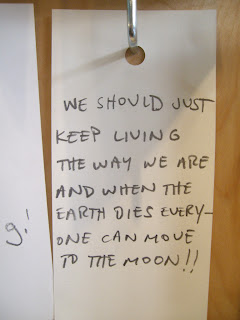 WE SHOULD JUST
KEEP LIVING
THE WAY WE ARE
AND WHEN THE
EARTH DIES EVERY-
ONE CAN MOVE
TO THE MOON!!
g!